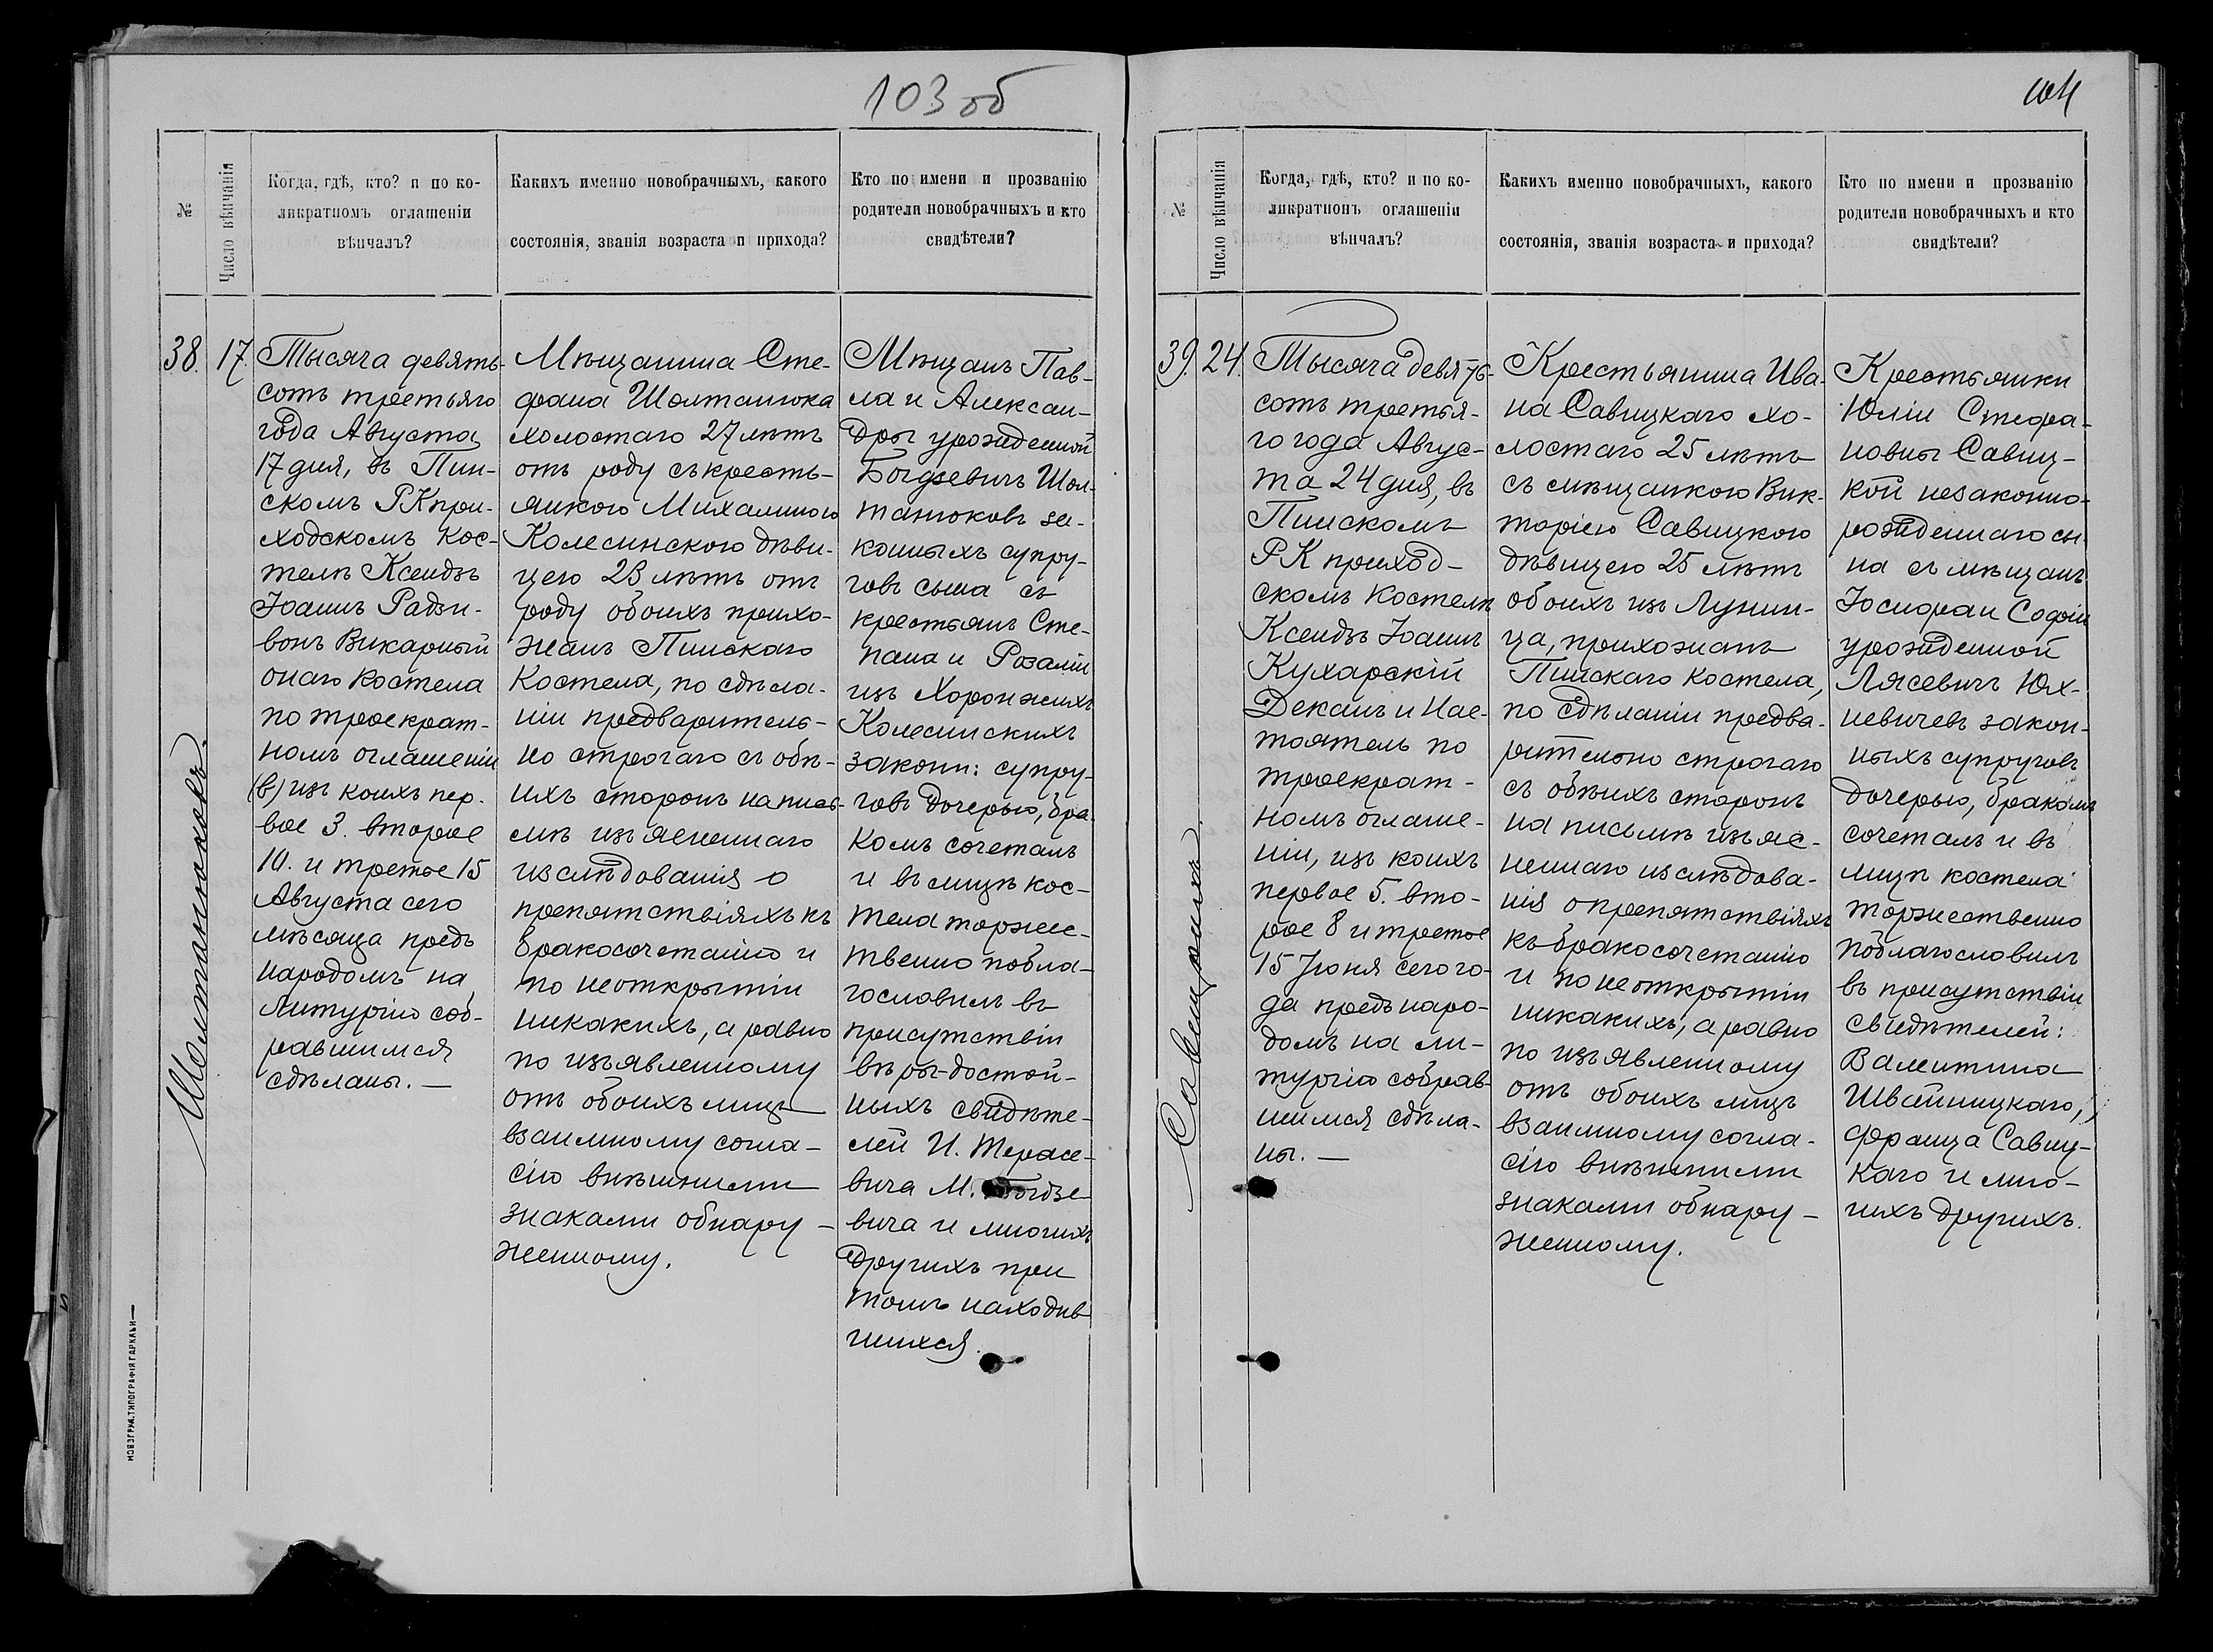 103 об
№
Число вѣнчанія
Когда, гдѣ, кто? и по ко-
ликратномъ оглашеніи
вѣнчалъ?
Какихъ именно новобрачныхъ, какого
состоянія, званія возраста и прихода?
Кто по имени и прозванію
родители новобрачныхъ и кто
свидѣтели?
38.
17.
Шолтанюковъ.
Тысяча девять-
сотъ третьяго
года Августа
17 дня, въ Пин-
скомъ РК при-
ходскомъ Кос-
телѣ Ксендзъ
Іоаннъ Радзи-
вонъ Викарный
онаго Костела
по троекрат-
номъ оглашеніи
(в) изъ коихъ пер.
вое 3. второе
10. и третье 15
Августа сего
мѣсяца предъ
народомъ на
Литургію соб-
равшимся
сдѣланы. —
Мѣщанина Сте-
фана Шолтанюка
холостаго 27 лѣтъ
отъ роду съ кресть-
янкою Михалиною
Колесинскою дѣви-
цею 23 лѣтъ отъ
роду обоихъ прихо-
жанъ Пинскаго
Костела, по сдѣла-
ніи предваритель-
но строгаго съ обѣ-
ихъ сторонъ на пись-
мѣ изъясненнаго
изслѣдованія о
препятствіяхъ къ
бракосочетанію и
по неоткрытіи
никакихъ, а равно
по изъявленному
отъ обоихъ лицъ
взаимному согла-
сію внѣшними
знаками обнару-
женному.
Мѣщанъ Пав-
ла и Алексан-
дры урожденной
Богдзевичъ Шол-
танюковъ за-
конныхъ супру-
говъ сына съ
крестьянъ Сте-
пана и Розаліи
изъ Хоронжихъ
Колесинскихъ
законн: супру-
говъ дочерью, бра-
комъ сочеталъ
и въ лицѣ кос-
тела торжес-
твенно побла-
гословилъ въ
присутствіи
вѣры-достой-
ныхъ свидѣте-
лей И. Терасе-
вича М. Богдзе-
вича и многихъ
другихъ при
томъ находив-
шихся.
НОВЗГРУД. ТИПОГРАФІЯ ГАРКАВИ—
104
№
Число вѣнчанія
Когда, гдѣ, кто? и по ко-
ликратномъ оглашеніи
вѣнчалъ?
Какихъ именно новобрачныхъ, какого
состоянія, званія возраста и прихода?
Кто по имени и прозванію
родители новобрачныхъ и кто
свидѣтели?
39.
24.
Тысяча девять-
сотъ третья-
го года Авгус-
та 24 дня, въ
Пинскомъ
РК приход-
скомъ Костелѣ
Ксендзъ Іоаннъ
Кухарскій
Деканъ и Нас-
тоятель по
троекрат-
номъ оглаше-
ніи, изъ коихъ
первое 5. вто-
рое 8 и третье
15 Іюня сего го-
да предъ наро-
домъ на ли-
тургію собрав-
шимся сдѣла-
ны. —
Крестьянина Ива-
на Савицкаго хо-
лостаго 25 лѣтъ
съ мѣщанкою Вик-
торіею Савицкою
дѣвицею 25 лѣтъ
обоихъ изъ Лунин-
ца, прихожанъ
Пинскаго Костела,
по сдѣланіи предва-
рительно строгаго
съ обѣихъ сторонъ
на письмѣ изъяс-
неннаго изслѣдова-
нія о препятствіяхъ
къ бракосочетанію
и по неоткрытіи
никакихъ, а равно
по изъявленному
отъ обоихъ лицъ
взаимному согла-
сію внѣшними
знаками обнару-
женному.
Крестьянки
Юліи Стефа-
новны Савиц-
кой незаконно-
рожденнаго сы-
на съ мѣщанъ
Іосифа и Софіи
урожденной
Лясевичъ Юх-
невичевъ закон-
ныхъ супруговъ
дочерью, бракомъ
сочеталъ и въ
лицѣ костела
торжественно
поблагословилъ
въ присутствіи
свидѣтелей:
Валентина
Швайницкаго,
Франца Савиц-
каго и мно-
гихъ другихъ.